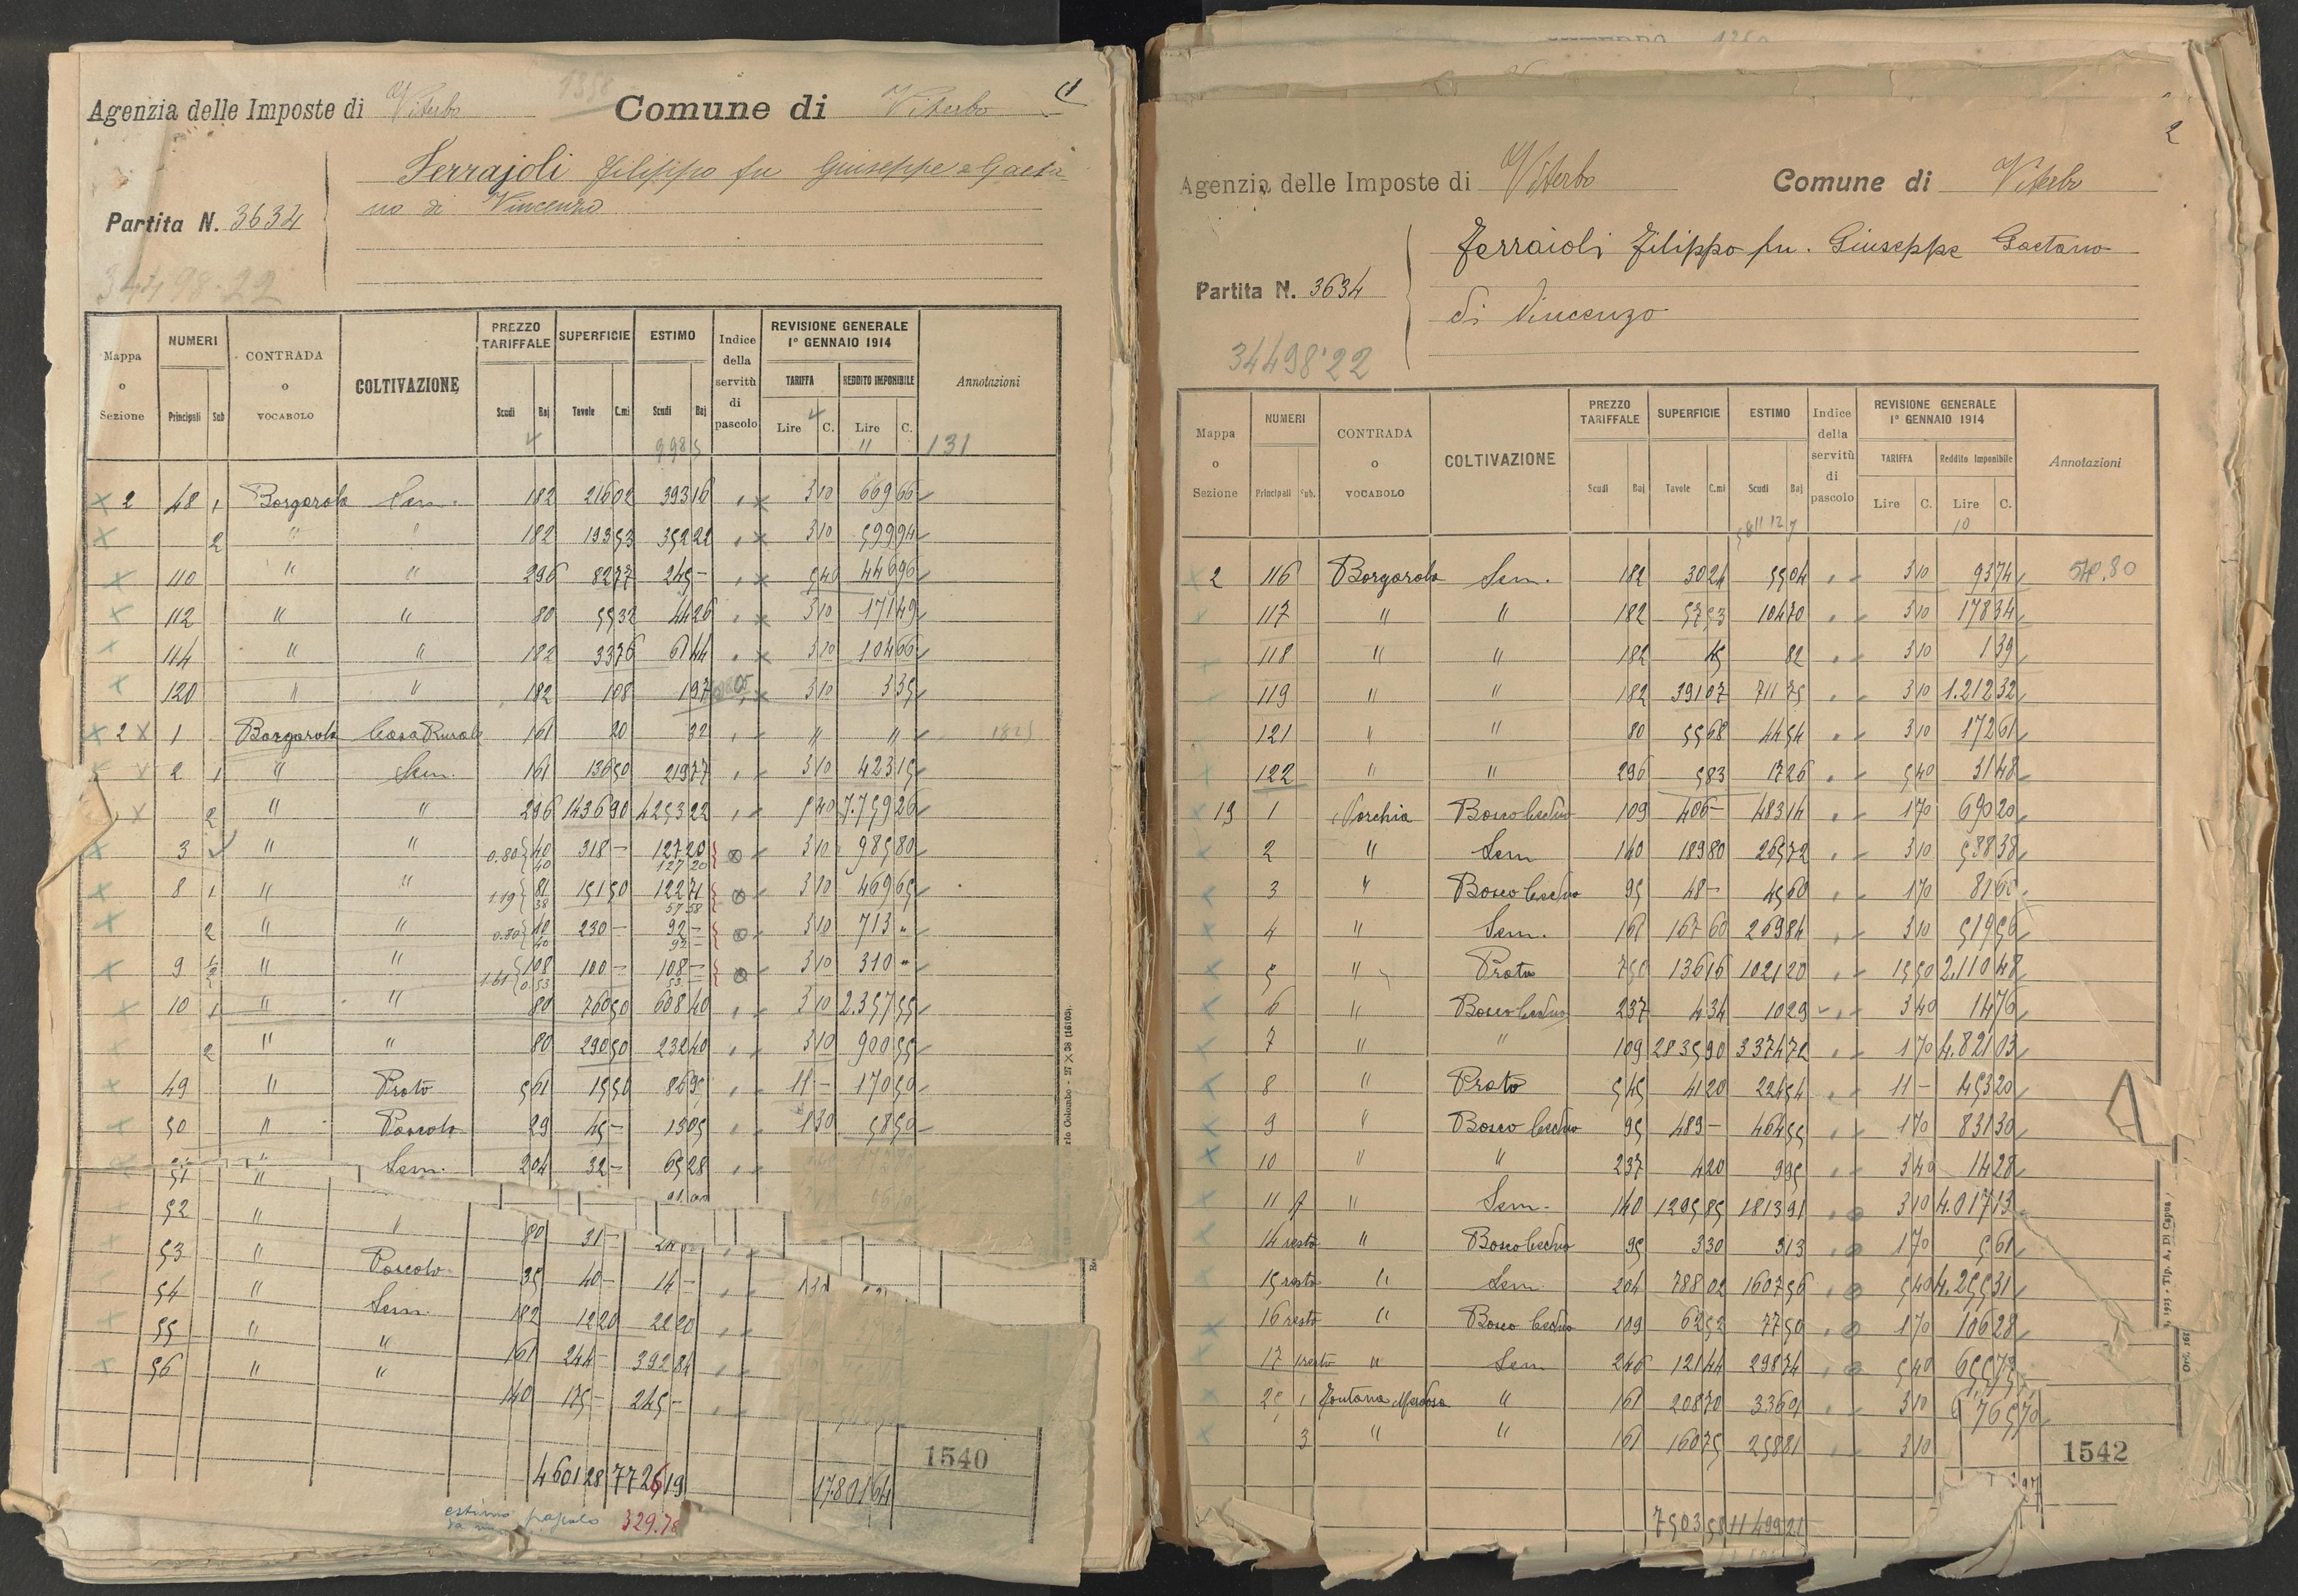 1358
1
Agenzia delle Imposte di Viterbo Comune di Viterbo
Ferrajoli Filippo fu Giuseppe e Gaeta-
no di Vincenzo
Partita N. 3634
34498.22
Mappa o Sezione NUMERI Principali Sub CONTRADA o VOCABOLO COLTIVAZIONE PREZZO TARIFFALE Scudi Baj SUPERFICIE Tavole C.mi ESTIMO Scudi Baj Indice della servitù di pascolo REVISIONE GENERALE 1º GENNAIO 1914 TARIFFA Lire C. REDDITO IMPONIBILE Lire C. Annotazioni
131
2 48 1 Borgorola Sem. 1 82 216 02 393 16 3 10 669 66
2 " " 1 82 193 53 352 22 3 10 599 94
110 " " 2 96 82 77 245 - 5 40 446 96
112 " " 80 55 32 44 26 3 10 171 49
114 " " 1 82 33 76 61 44 3 10 104 66
120 " " 1 82 1 08 1 97 3 10 3 35
2 1 Borgorola Casa Rurale 1 61 20 32 " "
2 1 " Sem. 1 61 136 50 219 77 3 10 423 15
2 " " 2 96 1436 90 4253 22 5 40 7.759 26
3 " " 0.80 40 40 318 - 127 20 127 20 3 10 985 80
8 1 " " 1.19 81 38 151 50 122 71 57 58 3 10 469 65
2 " " 0.80 40 40 230 - 92 - 92 - 3 10 713 "
9 " " 1.61 1 08 0.53 100 - 108 - 53 - 3 10 310 "
10 1 " " 80 760 50 608 40 3 10 2.357 55
2 " " 80 290 50 232 40 3 10 900 55
49 " Prato 5 61 15 50 86 95 11 - 170 50
50 " Pascolo 29 45 - 13 05 1 30 58 50
51 " Sem. 2 04 32 - 65 28
52 " " 80 31 -
53 " Pascolo 35 40 - 14 -
54 " Sem. 1 82 12 20 22 20
55 " " 1 61 244 - 392 84
56 " " 1 40 175 - 245 -
1540
4601 28 7726 19 17.801 64
estimo pascolo 329.78
2
Agenzia delle Imposte di Viterbo Comune di Viterbo
Ferraioli Filippo fu. Giuseppe Gaetano
Partita N. 3634
di Vincenzo
34498'22
Mappa o Sezione NUMERI Principali Sub. CONTRADA o VOCABOLO COLTIVAZIONE PREZZO TARIFFALE Scudi Baj SUPERFICIE Tavole C.mi ESTIMO Scudi Baj Indice della servitù di pascolo REVISIONE GENERALE 1º GENNAIO 1914 TARIFFA Lire C. Reddito Imponibile Lire C. Annotazioni
2 116 Borgorola Sem. 1 82 30 24 55 04 3 10 93 74
117 " " 1 82 57 53 104 70 3 10 178 34
118 " " 1 82 45 82 3 10 1 39
119 " " 1 82 391 07 711 75 3 10 1.212 32
121 " " 80 55 68 44 54 3 10 172 61
122 " " 2 96 5 83 17 26 5 40 31 48
13 1 Norchia Bosco Ceduo 1 09 406 - 483 14 1 70 690 20
2 " Sem 1 40 189 80 265 72 3 10 588 38
3 " Bosco Ceduo 95 48 - 45 60 1 70 81 60
4 " Sem. 1 61 167 60 269 84 3 10 519 56
5 " Prato 7 50 136 16 1021 20 15 50 2.110 48
6 " Bosco Ceduo 2 37 4 34 10 29 3 40 14 76
7 " " 1 09 2835 90 3374 72 1 70 4.821 03
8 " Prato 5 45 41 20 224 54 11 - 453 20
9 " Bosco Ceduo 95 489 - 464 55 1 70 831 30
10 " " 2 37 4 20 9 95 3 40 14 28
11 " Sem. 1 40 1295 85 1813 91 3 10 4.017 13
14 resto " Bosco Ceduo 95 3 30 3 13 1 70 5 61
15 resto " Sem. 2 04 788 02 1607 56 5 40 4.255 31
16 resto " Bosco Ceduo 1 09 62 52 77 50 1 70 106 28
17 resto " Sem 2 46 121 44 298 74 5 40 655 73
1 " 1 61 208 70 336 3 10
3 " " 1 61 160 75 258 81 3 10
1542
7503 58 11499 21